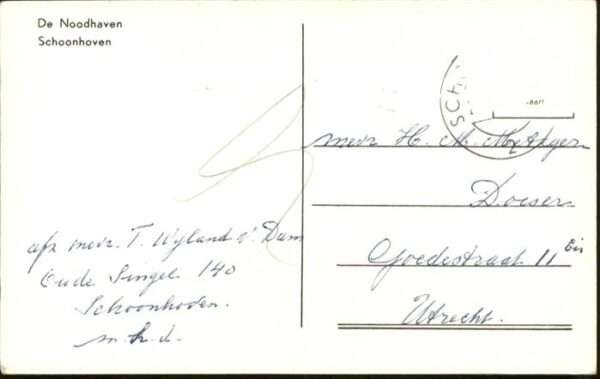 De Noodhaven
Schoonhoven
SCH
mevr. H. M. Metzger
Doesen
Goedestraat 11 bis
Utrecht.
afz mevr. T. Wyland v. Dam
Oude Singel 140
Schoonhoven.
m.h.d.